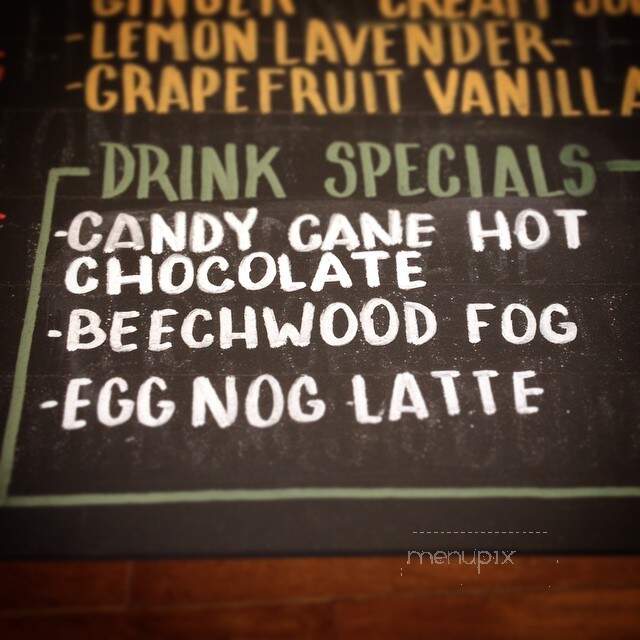 GINGER CREAM
-LEMON LAVENDER-
-GRAPEFRUIT VANILLA
DRINK SPECIALS
-CANDY CANE HOT
CHOCOLATE
-BEECHWOOD FOG
-EGG NOG LATTE
menupix